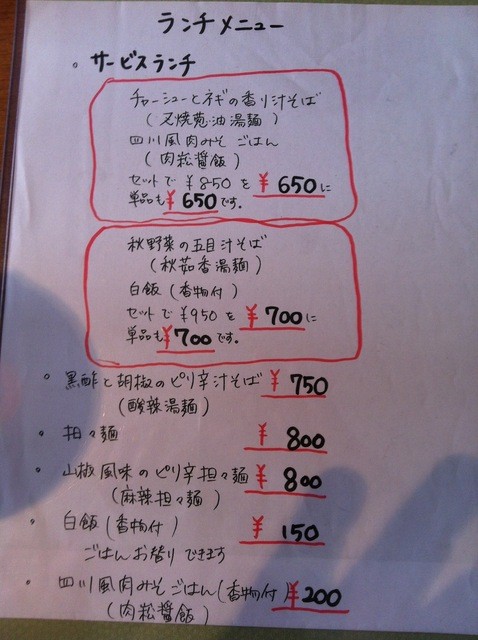 ランチメニュー
。サービスランチ
チャーシューとネギの香り汁そば
(叉焼葱油湯麺)
四川風肉みそごはん
(肉松醤飯)
セットで ¥850を ¥650に
単品も¥650です.
秋野菜の五目汁そば
(秋茹香湯麺)
白飯(香物付)
セットで ¥950を ¥700に
単品も¥700です.
。黒酢と胡椒のピリ辛汁そば ¥750
(酸辣湯麺)
。担々麺 ¥800
。山椒風味のピリ辛担々麺 ¥800
(麻辣担々麺)
。白飯(香物付) ¥150
ごはんお替りできます
。四川風肉みそごはん(香物付)¥200
(肉松醤飯)